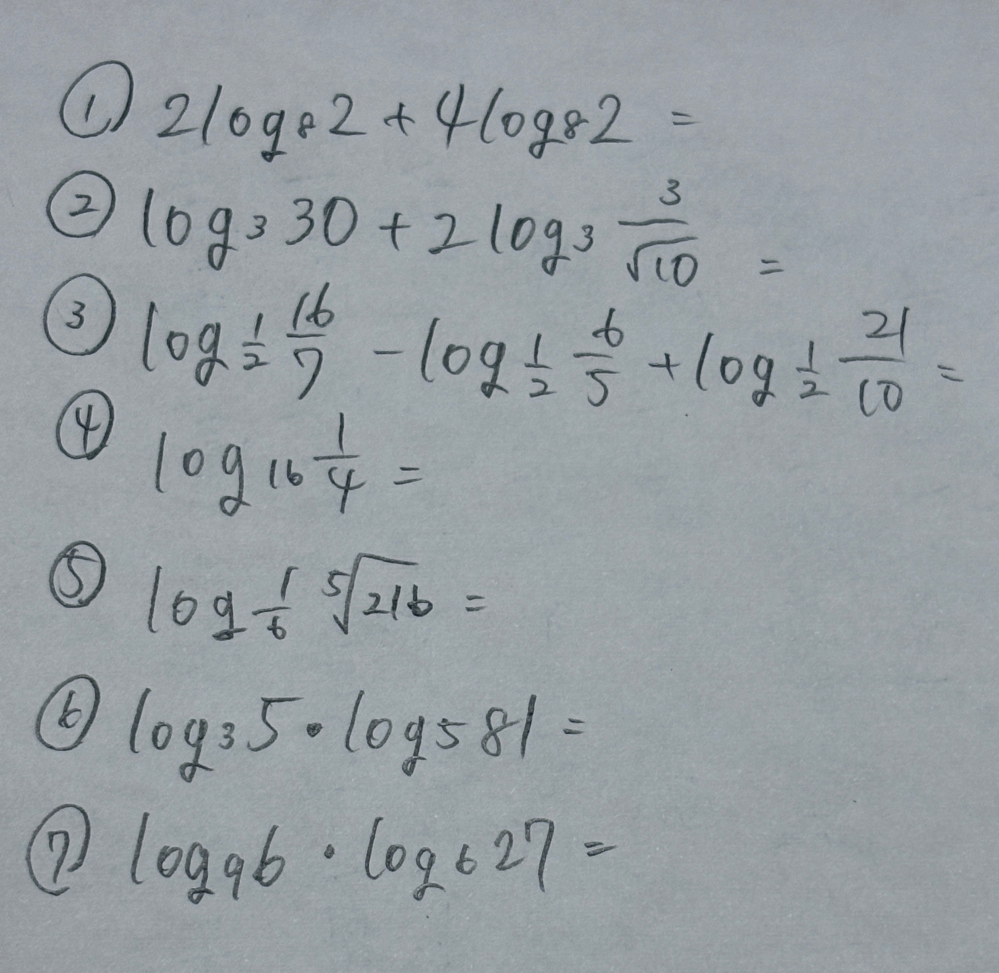 ① 2log₈2 + 4log₈2 =
② log₃30 + 2log₃ 3/√10 =
③ log½ 16/7 - log½ 6/5 + log½ 21/10 =
④ log₁₆ 1/4 =
⑤ log⅙ ⁵√216 =
⑥ log₃5・log₅81 =
⑦ log₉6・log₆27 =